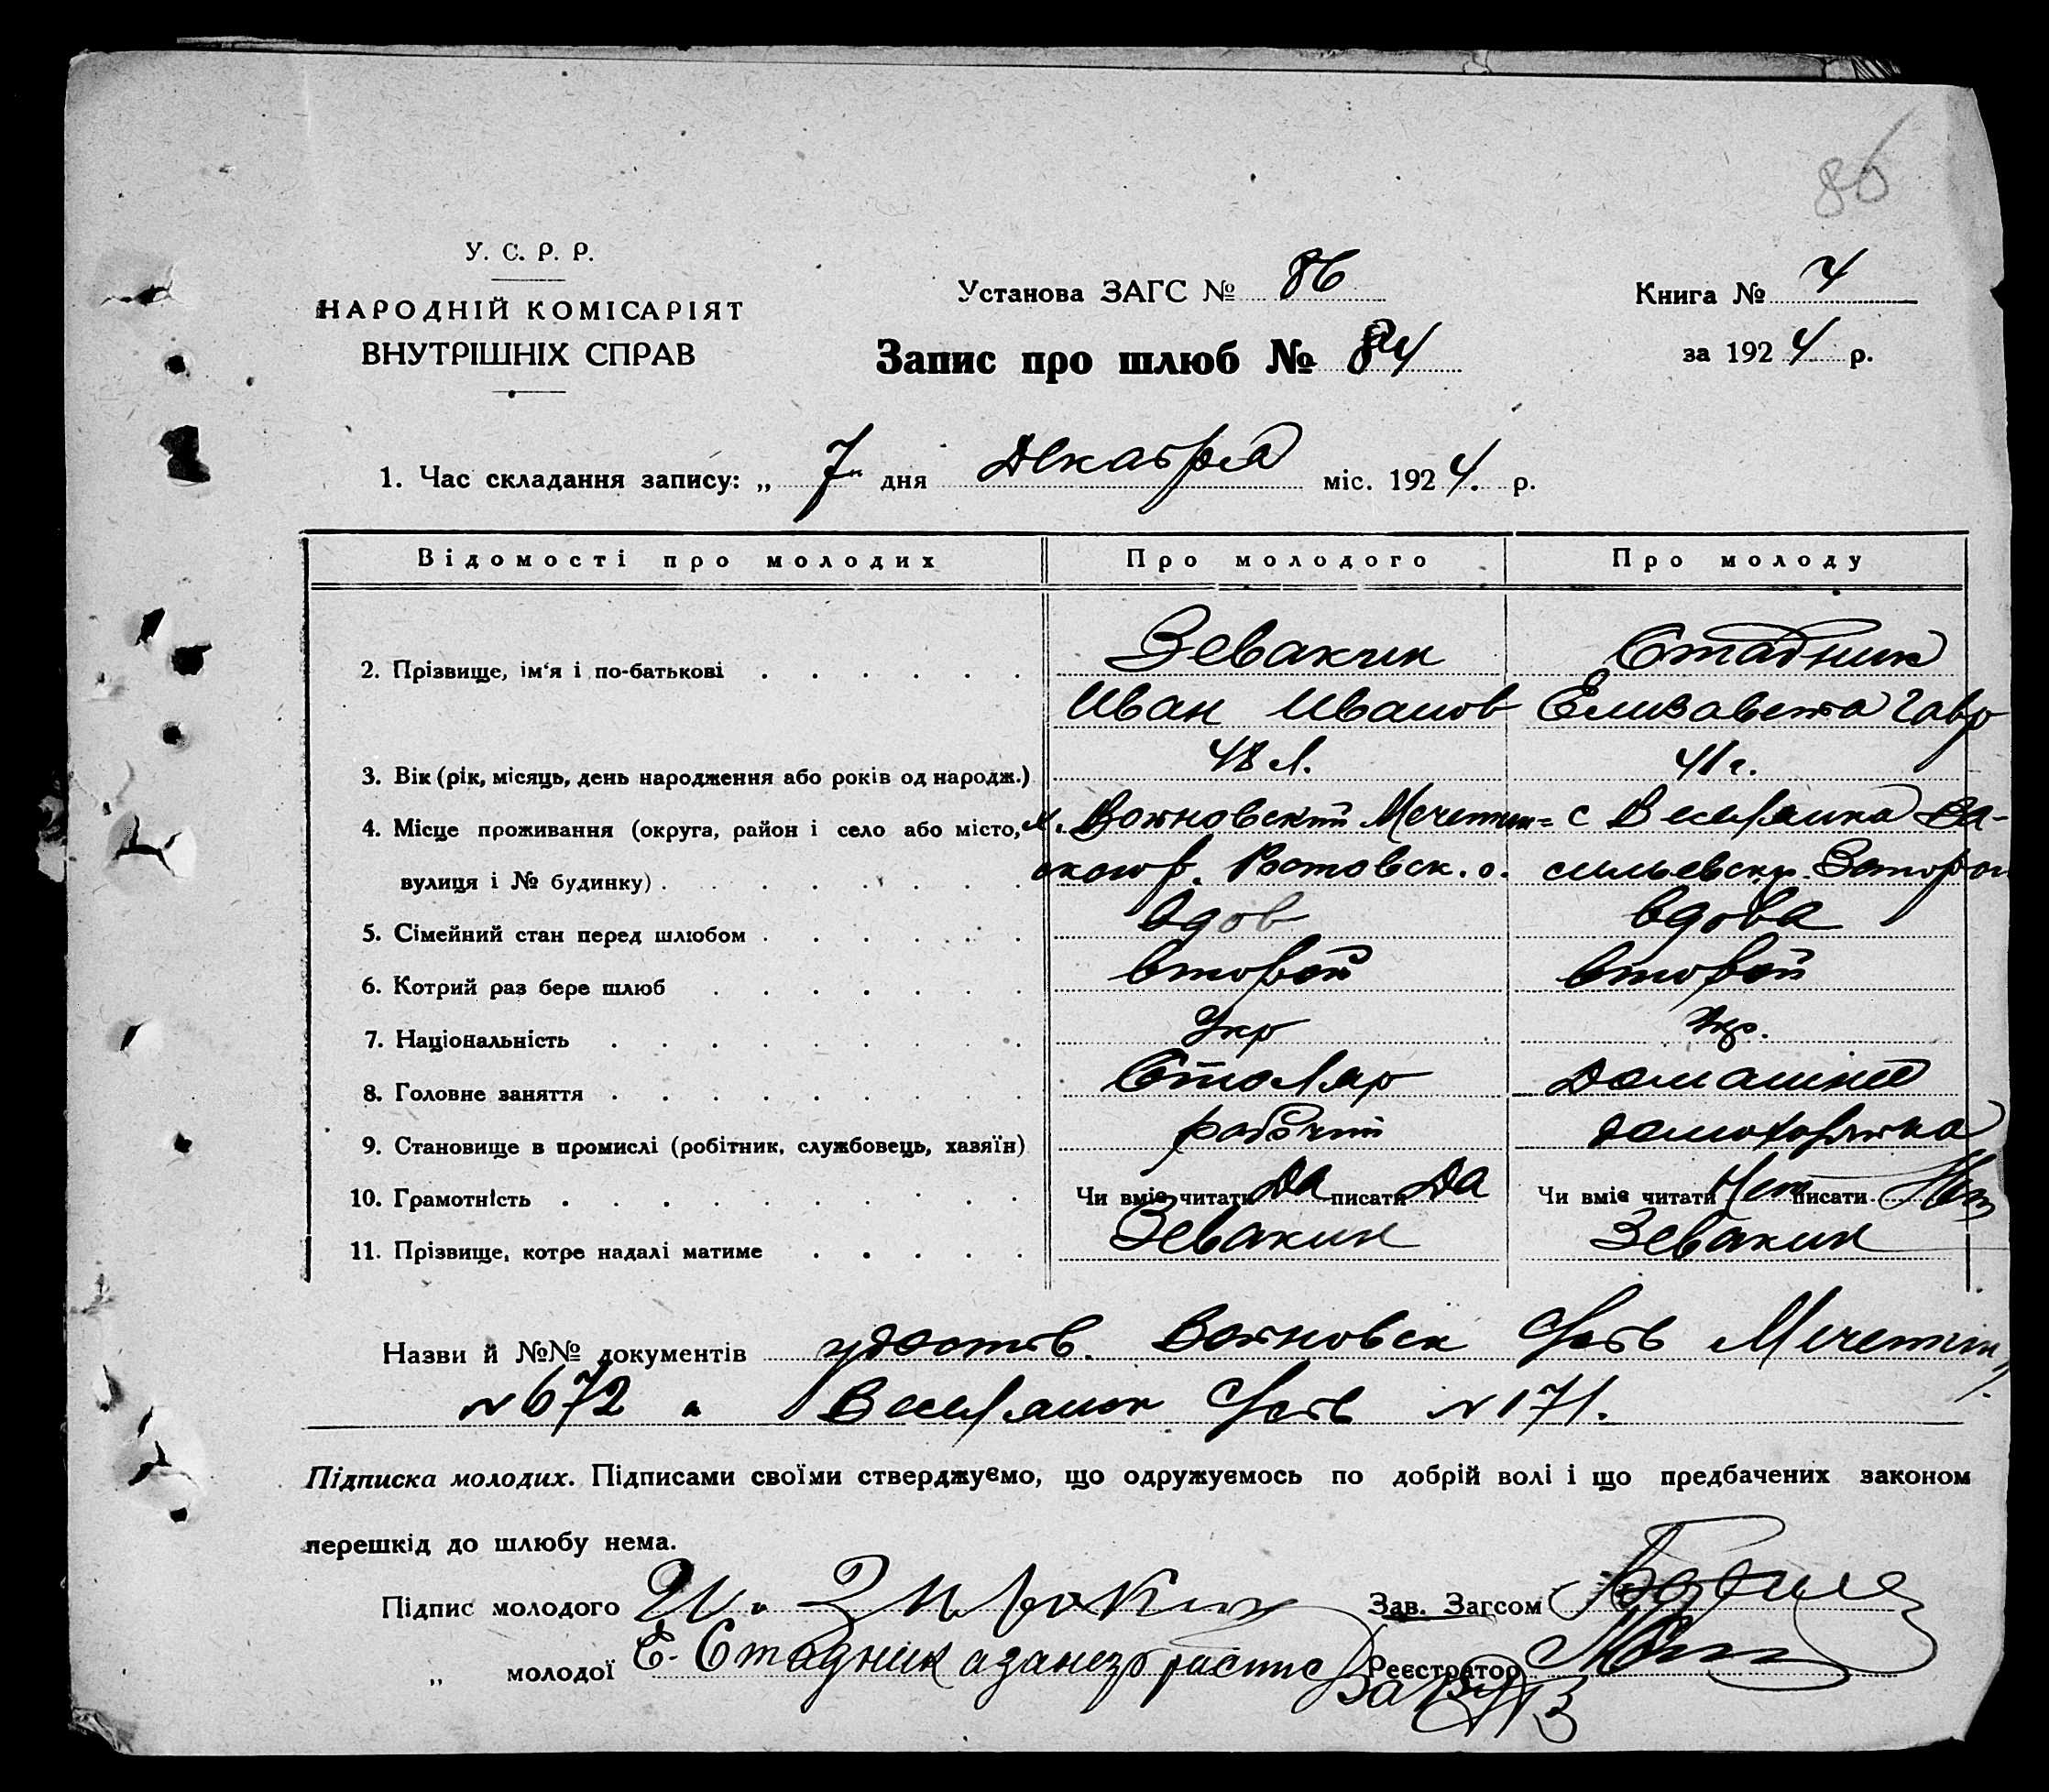 86
У. С. Р. Р.
НАРОДНІЙ КОМІСАРІЯТ
ВНУТРІШНІХ СПРАВ
Установа ЗАГС № 86
Книга № 4
Запис про шлюб № 84
за 1924 р.
1. Час складання запису: „ 7 " дня Декабря міс. 1924. р.
Відомості про молодих Про молодого Про молоду
2. Прізвище, ім'я і по-батькові Зевакин Стадник
Иван Иванов Елизавета Гавр
3. Вік (рік, місяць, день народження або років од народж.) 48 л. 41 г.
4. Місце проживання (округа, район і село або місто, х. Мечетин= с Веселянка Ва-
вулиця і № будинку) Ростовск. о. сильевск р.
5. Сімейний стан перед шлюбом вдов вдова
6. Котрий раз бере шлюб второй второй
7. Національність Укр Укр.
8. Головне заняття Столяр Домашнее
9. Становище в промислі (робітник, службовець, хазяїн) рабочий
10. Грамотність Чи вміє читати Да писати Да Чи вміє читати Нет писати Нет
11. Прізвище, котре надалі матиме Зевакин Зевакин
Назви й №№ документів удостов. Мечетин
№ 672 и Веселянск № 171.
Підписка молодих. Підписами своїми стверджуємо, що одружуємось по добрій волі і що предбачених законом
перешкід до шлюбу нема.
Підпис молодого И. Зав. Загсом
„ молодої Е. Стадник а за нее Реєстратор